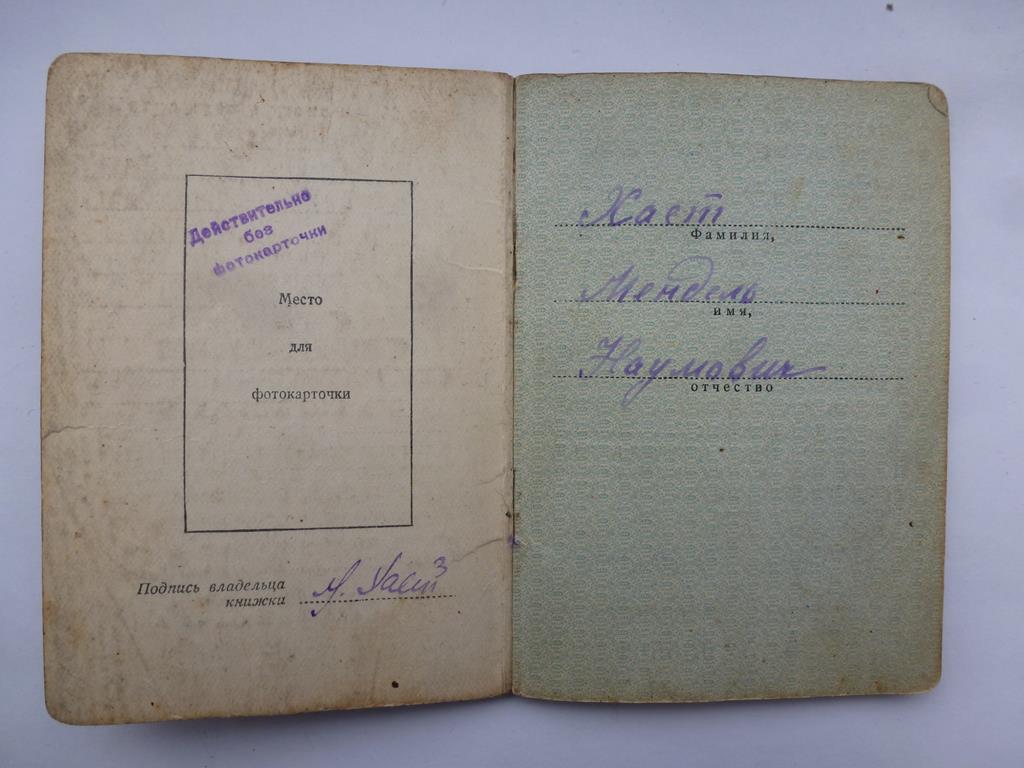 Действительно
без
фотокарточки
Место
для
фотокарточки
Подпись владельца
книжки
Хаст
Фамилия,
Мендель
имя,
Наумович
отчество